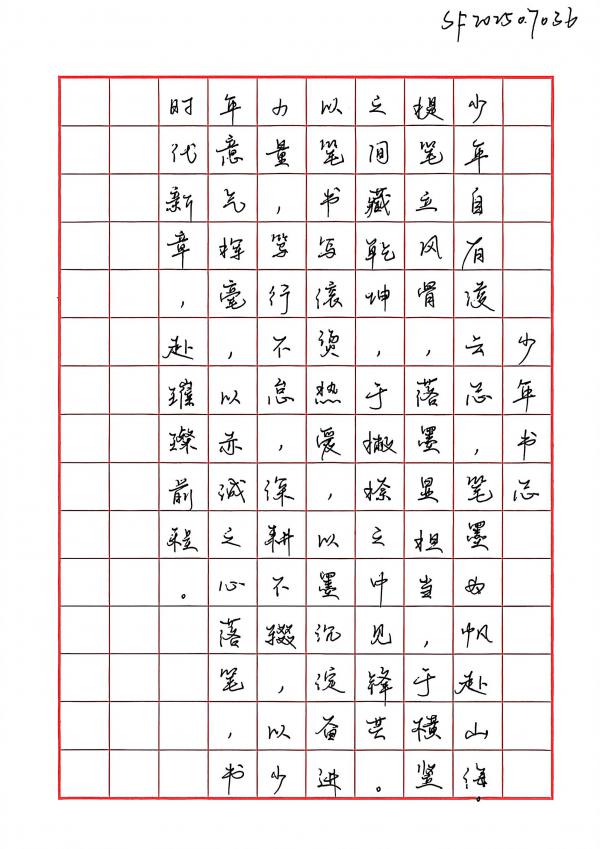 SF20250.7036
少年书志
少年自有凌云志，笔墨如帆赴山海。
提笔立风骨，落墨显担当，于横竖
之间藏乾坤，于撇捺之中见锋芒。
以笔书写滚烫热爱，以墨沉淀奋进
力量，笃行不怠，深耕不辍，以少
年意气挥毫，以赤诚之心落笔，书
时代新章，赴璀璨前程。